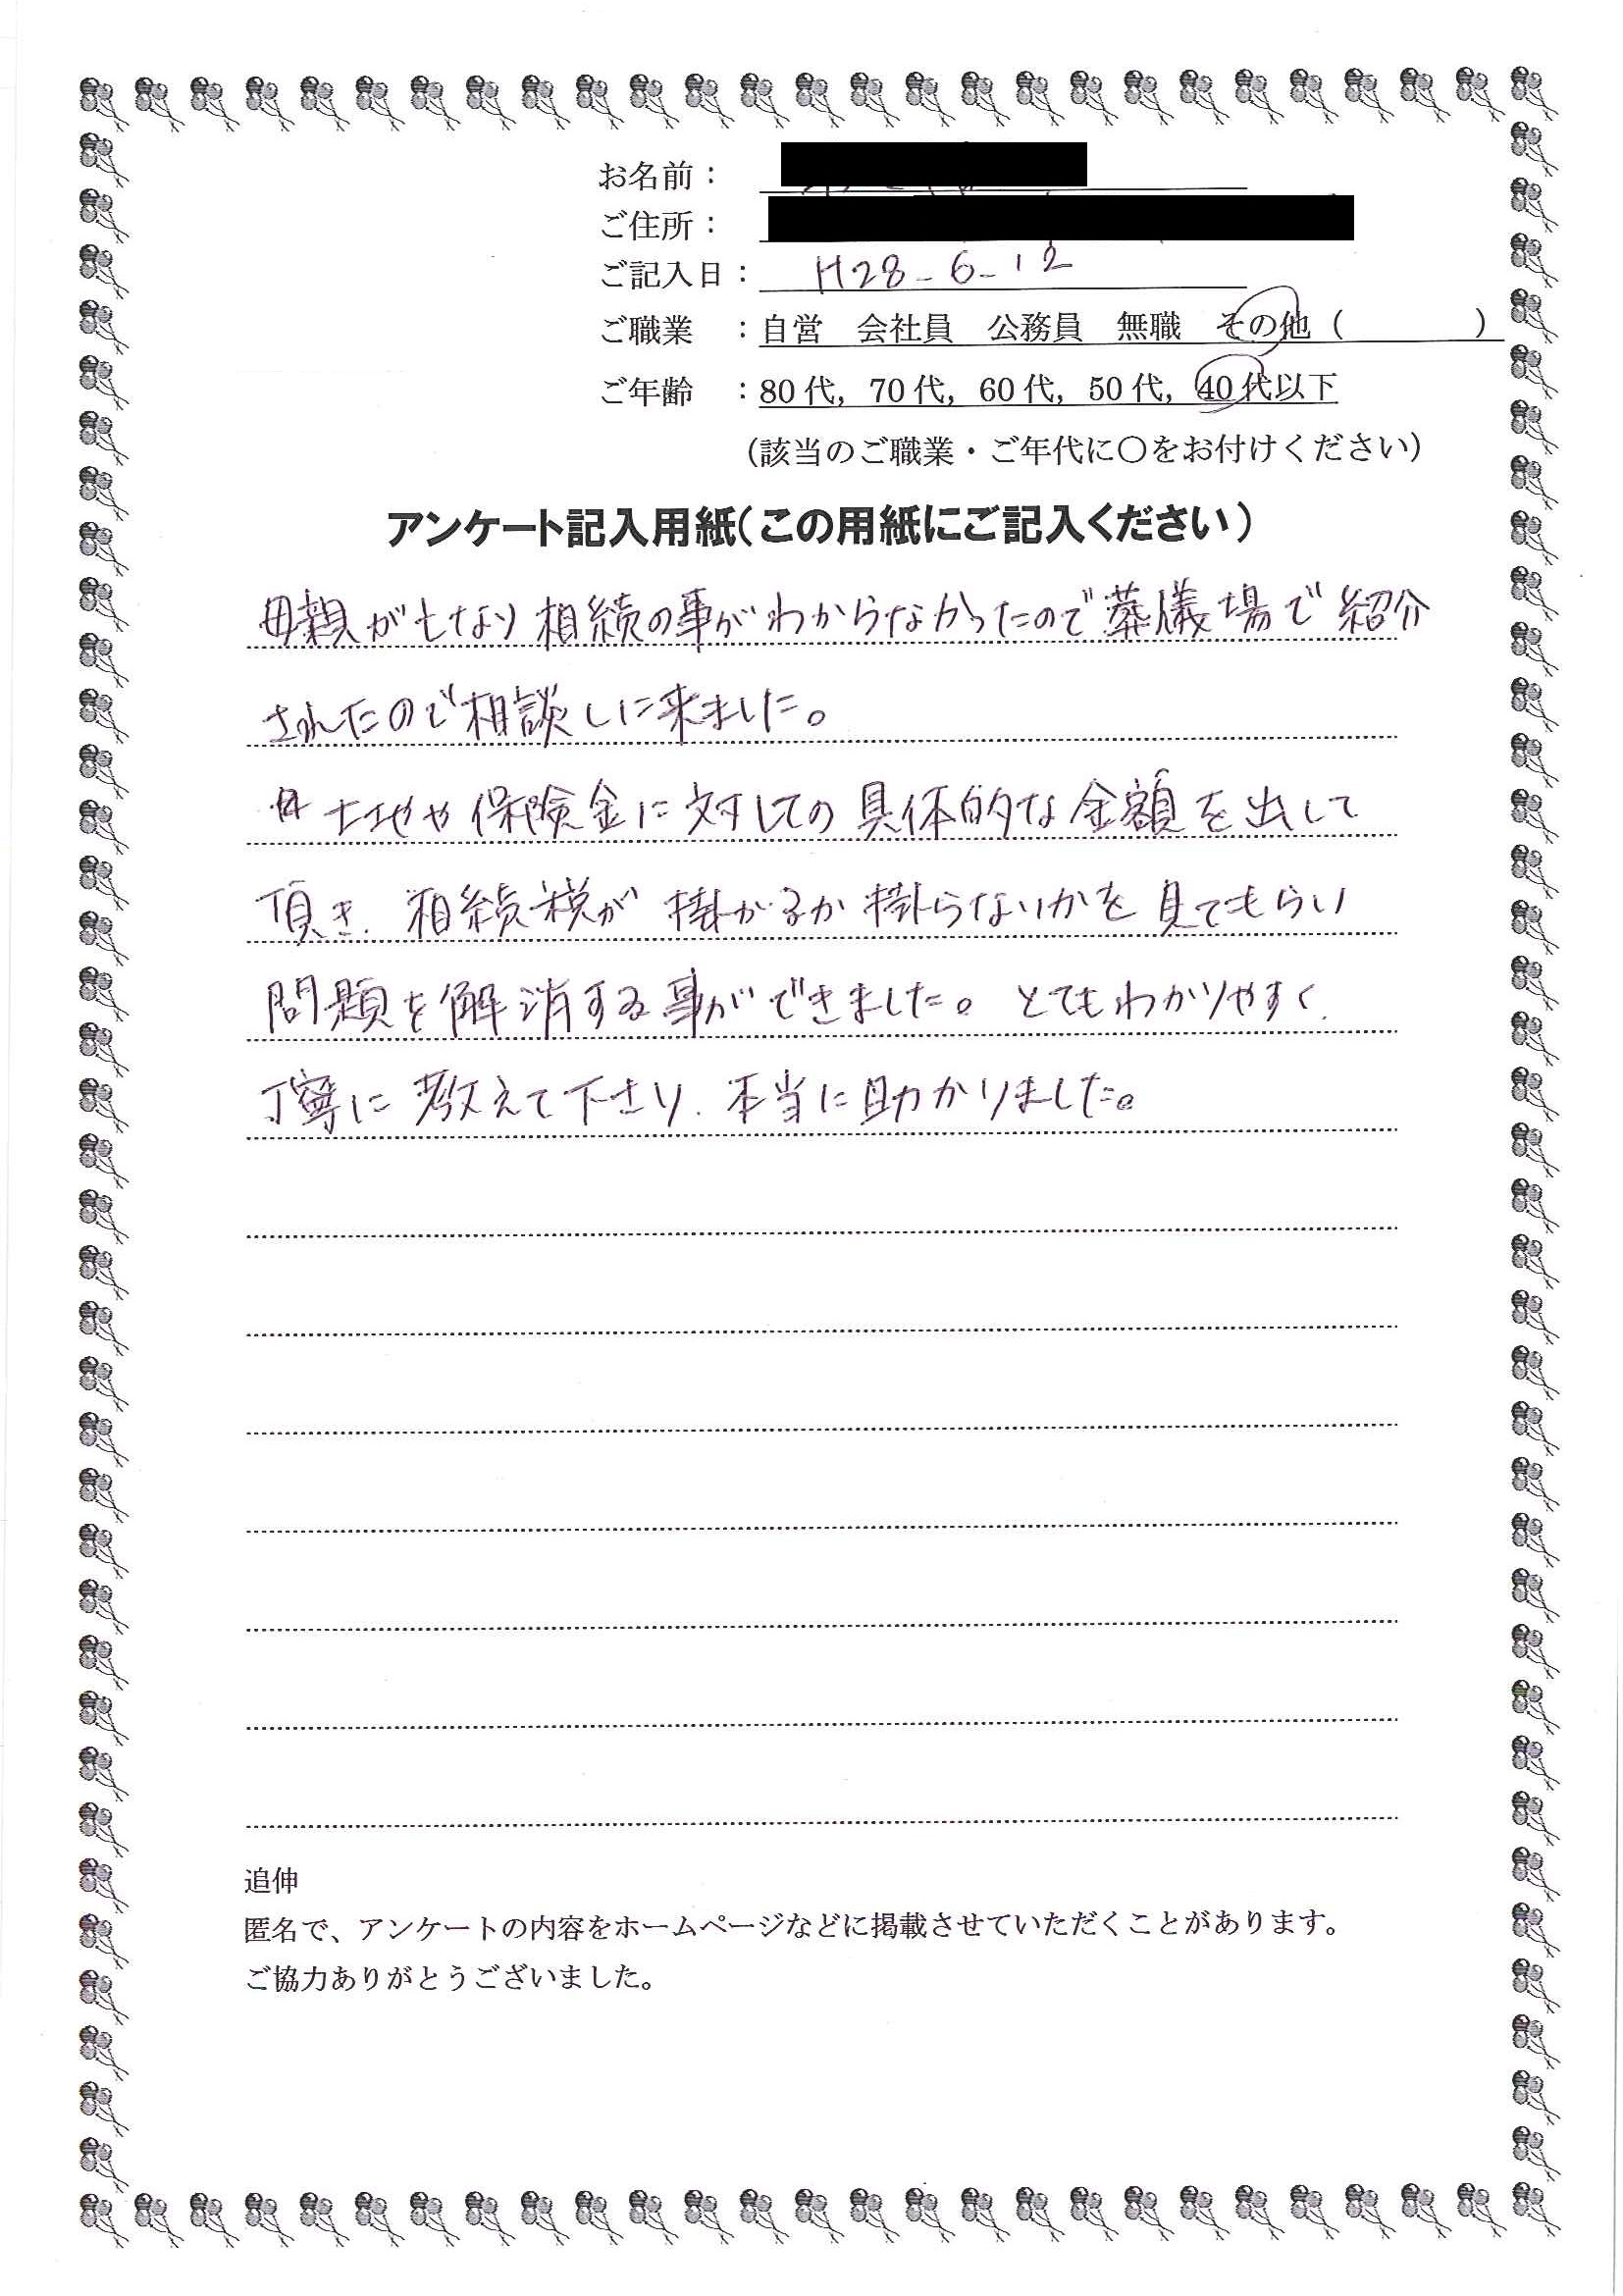 お名前：
ご住所：
ご記入日： H28-6-12
ご職業 ：自営 会社員 公務員 無職 その他（ ）
ご年齢 ：80代，70代，60代，50代，40代以下
（該当のご職業・ご年代に〇をお付けください）
アンケート記入用紙（この用紙にご記入ください）
母親が亡なり相続の事がわからなかったので葬儀場で紹介
されたので相談しに来ました。
土地や保険金に対しての具体的な金額を出して
頂き、相続税が掛かるか掛らないかを見てもらい
問題を解消する事ができました。とてもわかりやすく、
丁寧に教えて下さり、本当に助かりました。
追伸
匿名で、アンケートの内容をホームページなどに掲載させていただくことがあります。
ご協力ありがとうございました。